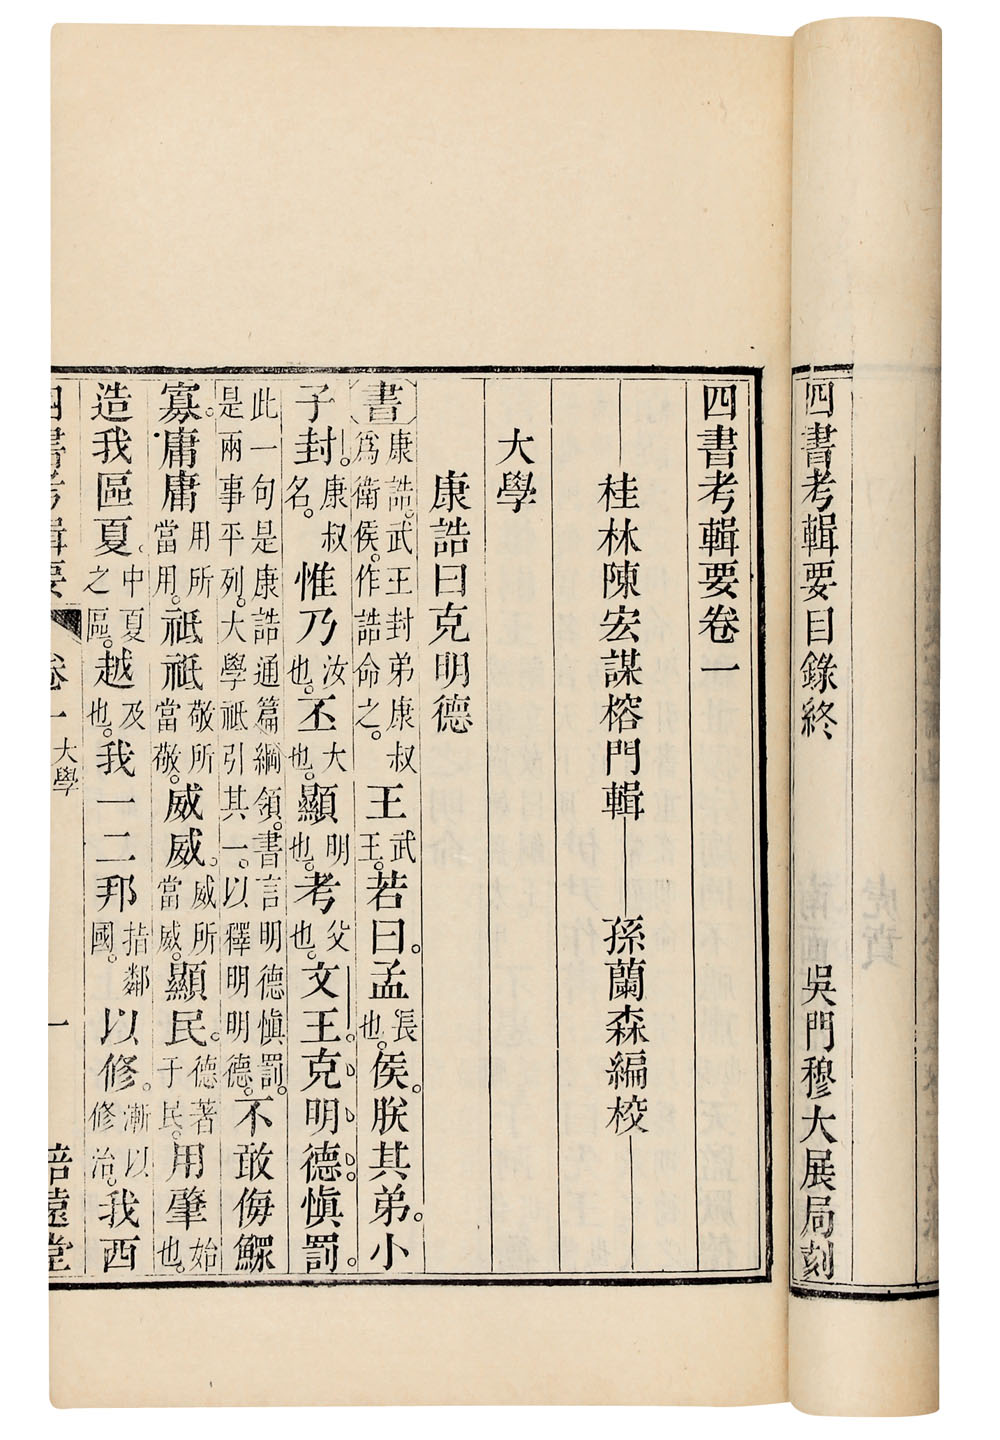 四書考輯要目錄終　吳門穆大展局刻
四書考輯要卷一
桂林陳宏謀榕門輯　孫蘭森編校
大學
康誥曰克明德
書康誥。武王封弟康叔爲衛侯。作誥命之。王武王。若曰。孟長也。侯。朕其弟。小
子封。康叔名。惟乃汝也。丕大也。顯明也。考父也。文王。克明德。慎罰。
此一句是康誥通篇綱領。書言明德慎罰。是兩事平列。大學祗引其一。以釋明明德。不敢侮鰥
寡。庸庸用所當用。祗祗敬所當敬。威威。威所當威。顯民。德著于民。用肇始也。
造我區夏。中夏之區。越及也。我一二邦指鄰國。以修。漸以修治。我西
四書考輯要　卷一　大學　一　培遠堂